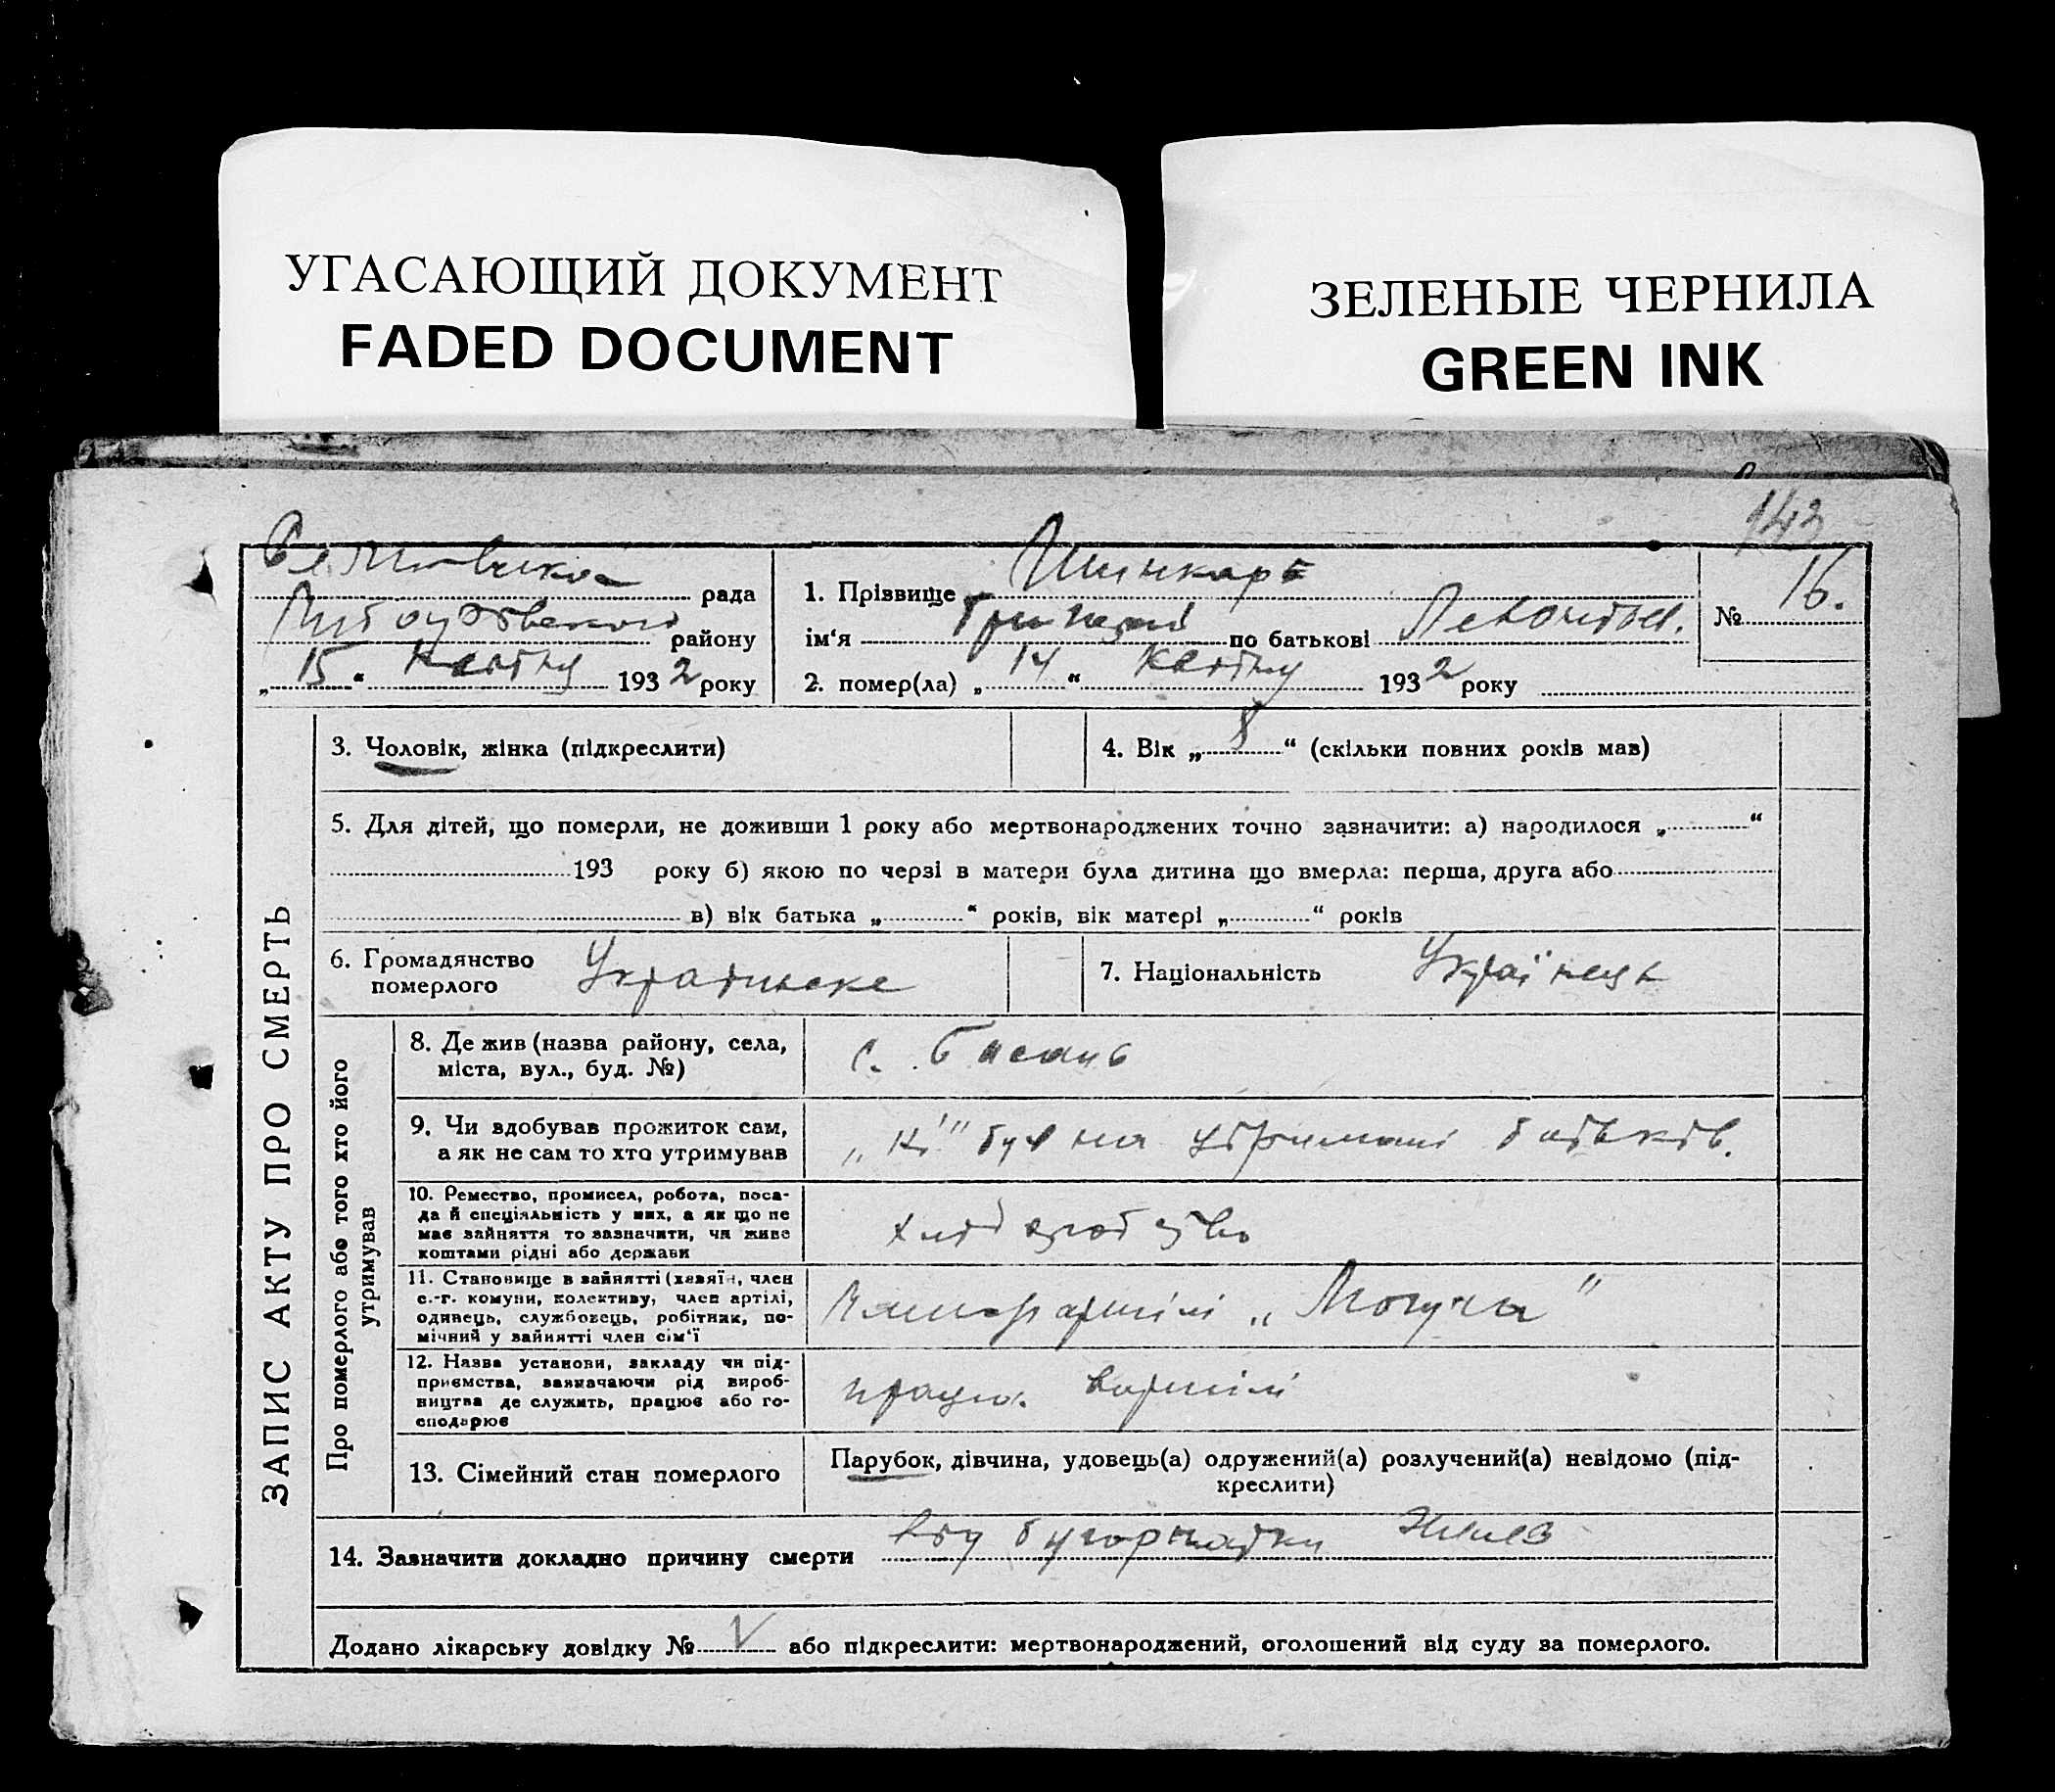 УГАСАЮЩИЙ ДОКУМЕНТ
FADED DOCUMENT
ЗЕЛЕНЫЕ ЧЕРНИЛА
GREEN INK
143
рада
району
„15“ Квітня 1932 року
1. Прізвище Шинкарь
ім‘я Григорій по батькові
№ 16.
2. помер(ла) „14“ Квітня 1932 року
ЗАПИС АКТУ ПРО СМЕРТЬ
3. Чоловік, жінка (підкреслити)
4. Вік „8“ (скільки повних років мав)
5. Для дітей, що померли, не доживши 1 року або мертвонароджених точно зазначити: а) народилося „ “
193 року б) якою по черзі в матери була дитина що вмерла: перша, друга або
в) вік батька „ “ років, вік матері „ “ років
6. Громадянство
померлого
Українське
7. Національність Українець
Про померлого або того хто його
утримував
8. Де жив (назва району, села,
міста, вул., буд. №)
с. Басань
9. Чи вдобував прожиток сам,
а як не сам то хто утримував
„Ні“ був на утримані батьків.
10. Ремество, промисел, робота, поса-
да й спеціяльність у них, а як що не
має зайняття то зазначити, чи живе
коштами рідні або держави
хліборобство
11. Становище в зайнятті (хазяїн, член
с.-г. комуни, колективу, член артілі,
одинець, службовець, робітник, по-
мічний у зайнятті член сім‘ї
артілі „Могуча“
12. Назва установи, закладу чи під-
приємства, зазначаючи рід вироб-
ництва де служить, працює або го-
сподарює
працю. вартілі
13. Сімейний стан померлого
Парубок, дівчина, удовець(а) одружений(а) розлучений(а) невідомо (під-
креслити)
14. Зазначити докладно причину смерти
Додано лікарську довідку № V або підкреслити: мертвонароджений, оголошений від суду за померлого.